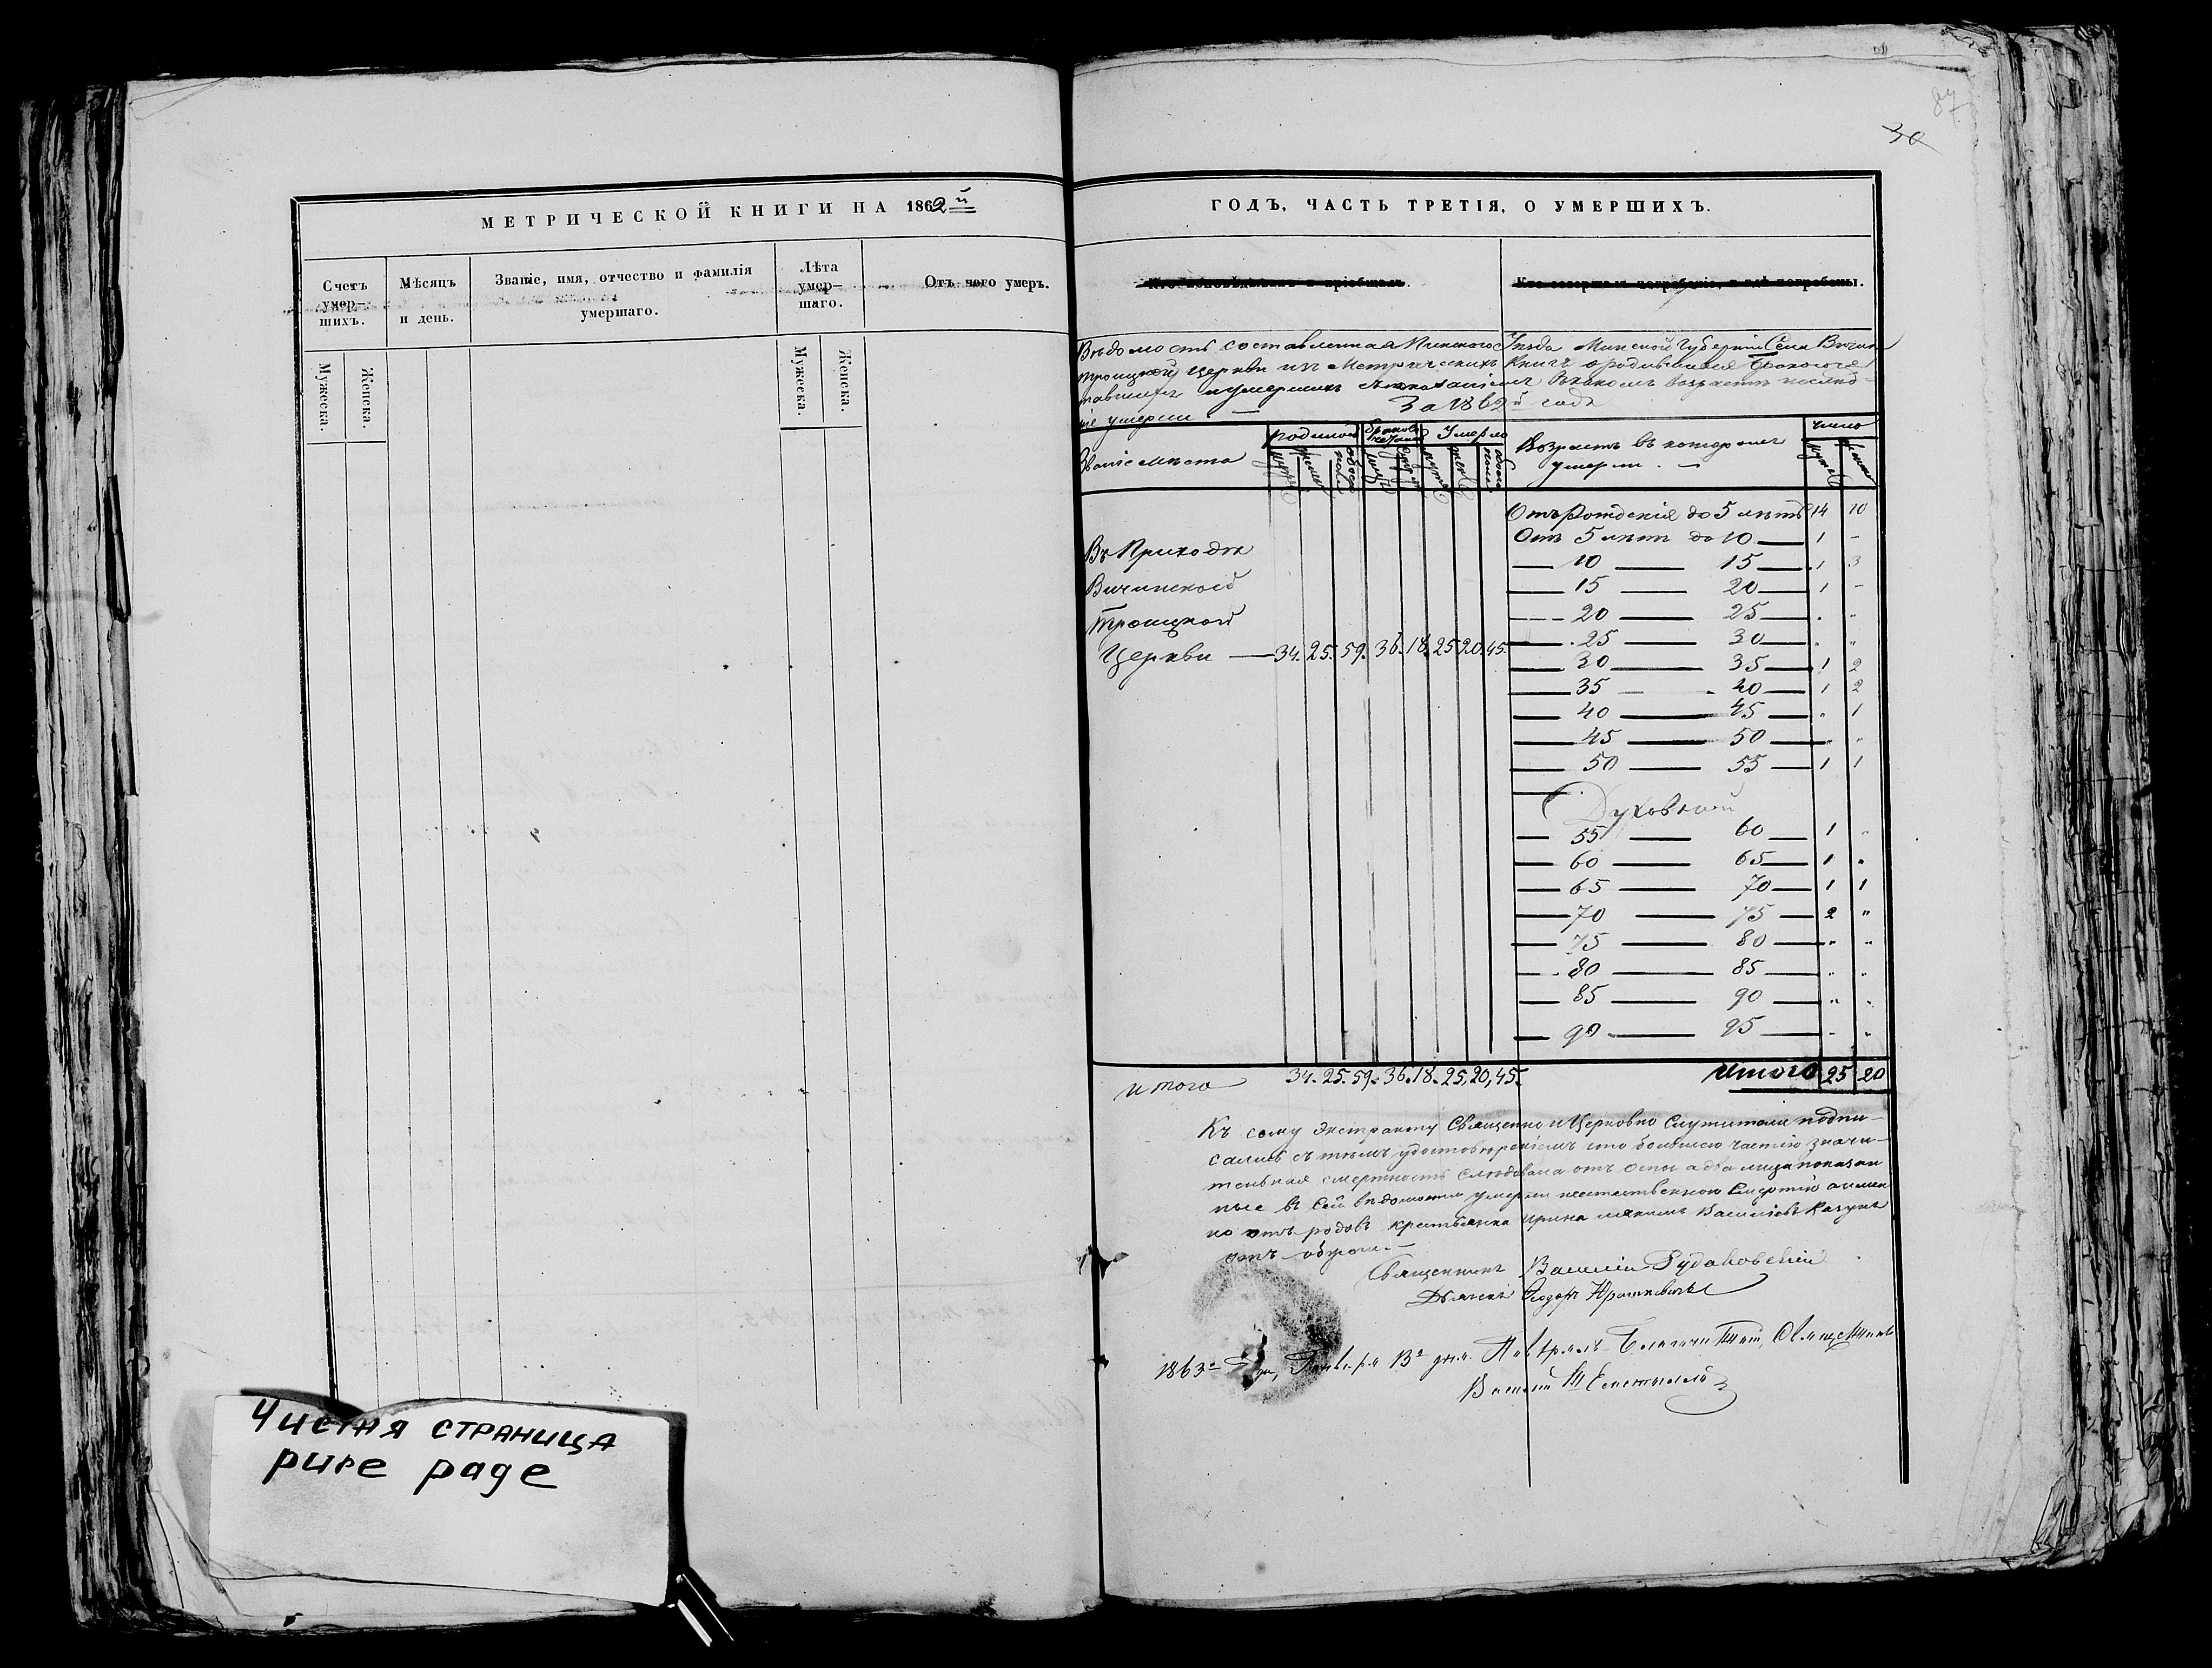 87
30
МЕТРИЧЕСКОЙ КНИГИ НА 1862й
Счетъ умер–шихъ.
Мужеска.
Женска.
Мѣсяцъ и день.
Званіе, имя, отчество и фамилія умершаго.
Лѣта умер–шаго.
Мужеска.
Женска.
Отъ чего умеръ.
Чистая страница
pure page
ГОДЪ, ЧАСТЬ ТРЕТІЯ, О УМЕРШИХЪ.
Кто исповѣдывалъ и пріобщалъ.
Кто совершалъ погребеніе, и гдѣ погребены.
Вѣдомость составленная Пинскаго Уѣзда Минской Губерніи Села Вичин
Троицкой Церкви изъ Метрическихъ Книгъ о родившихся Бракосоче
тавшихъ и умершихъ съ показаніемъ въ какомъ возрастѣ послѣд–
ніе умерли — За 1862й годъ
Званіе мѣста
родилось
Умерло
Возрастъ въ которомъ
умерли. —
число
Отъ Рожденія до 5 лѣтъ 14 10
Отъ 5 лѣтъ до 10 — 1 –
— 10 — 15 — 1 3
— 15 — 20 — 1 –
— 20 — 25 — " "
— 25 — 30 — " "
— 30 — 35 — 1 2
— 35 — 40 — 1 2
— 40 — 45 — " 1
— 45 — 50 — " "
— 50 — 55 — 1 1
Духовной
— 55 — 60 — 1 "
— 60 — 65 — 1 "
— 65 — 70 — 1 1
— 70 — 75 — 2 "
— 75 — 80 — " "
— 80 — 85 — " "
— 85 — 90 — " "
— 90 — 95 — " "
Въ Приходѣ
Вичинской
Троицкой
Церкви — 34. 25. 59. 36. 18. 25 20. 45.
итого 34. 25. 59. 36. 18. 25, 20, 45.
Итого 25 20
Къ сему Экстракту Священно и Церковно Служители подпи–
сались съ тѣмъ удостовѣреніемъ что большею частію значи–
тельная смертность слѣдовала отъ оспы а два лица показан
ные въ сей вѣдомости умерли неестественною Смертію а имен
но отъ родовъ крестьянка Ирина Василіевъ
отъ
Священникъ Василій Рудаковскій
Дьячекъ Ѳеодоръ
1863го Года, Января дня. Священникъ
Василій